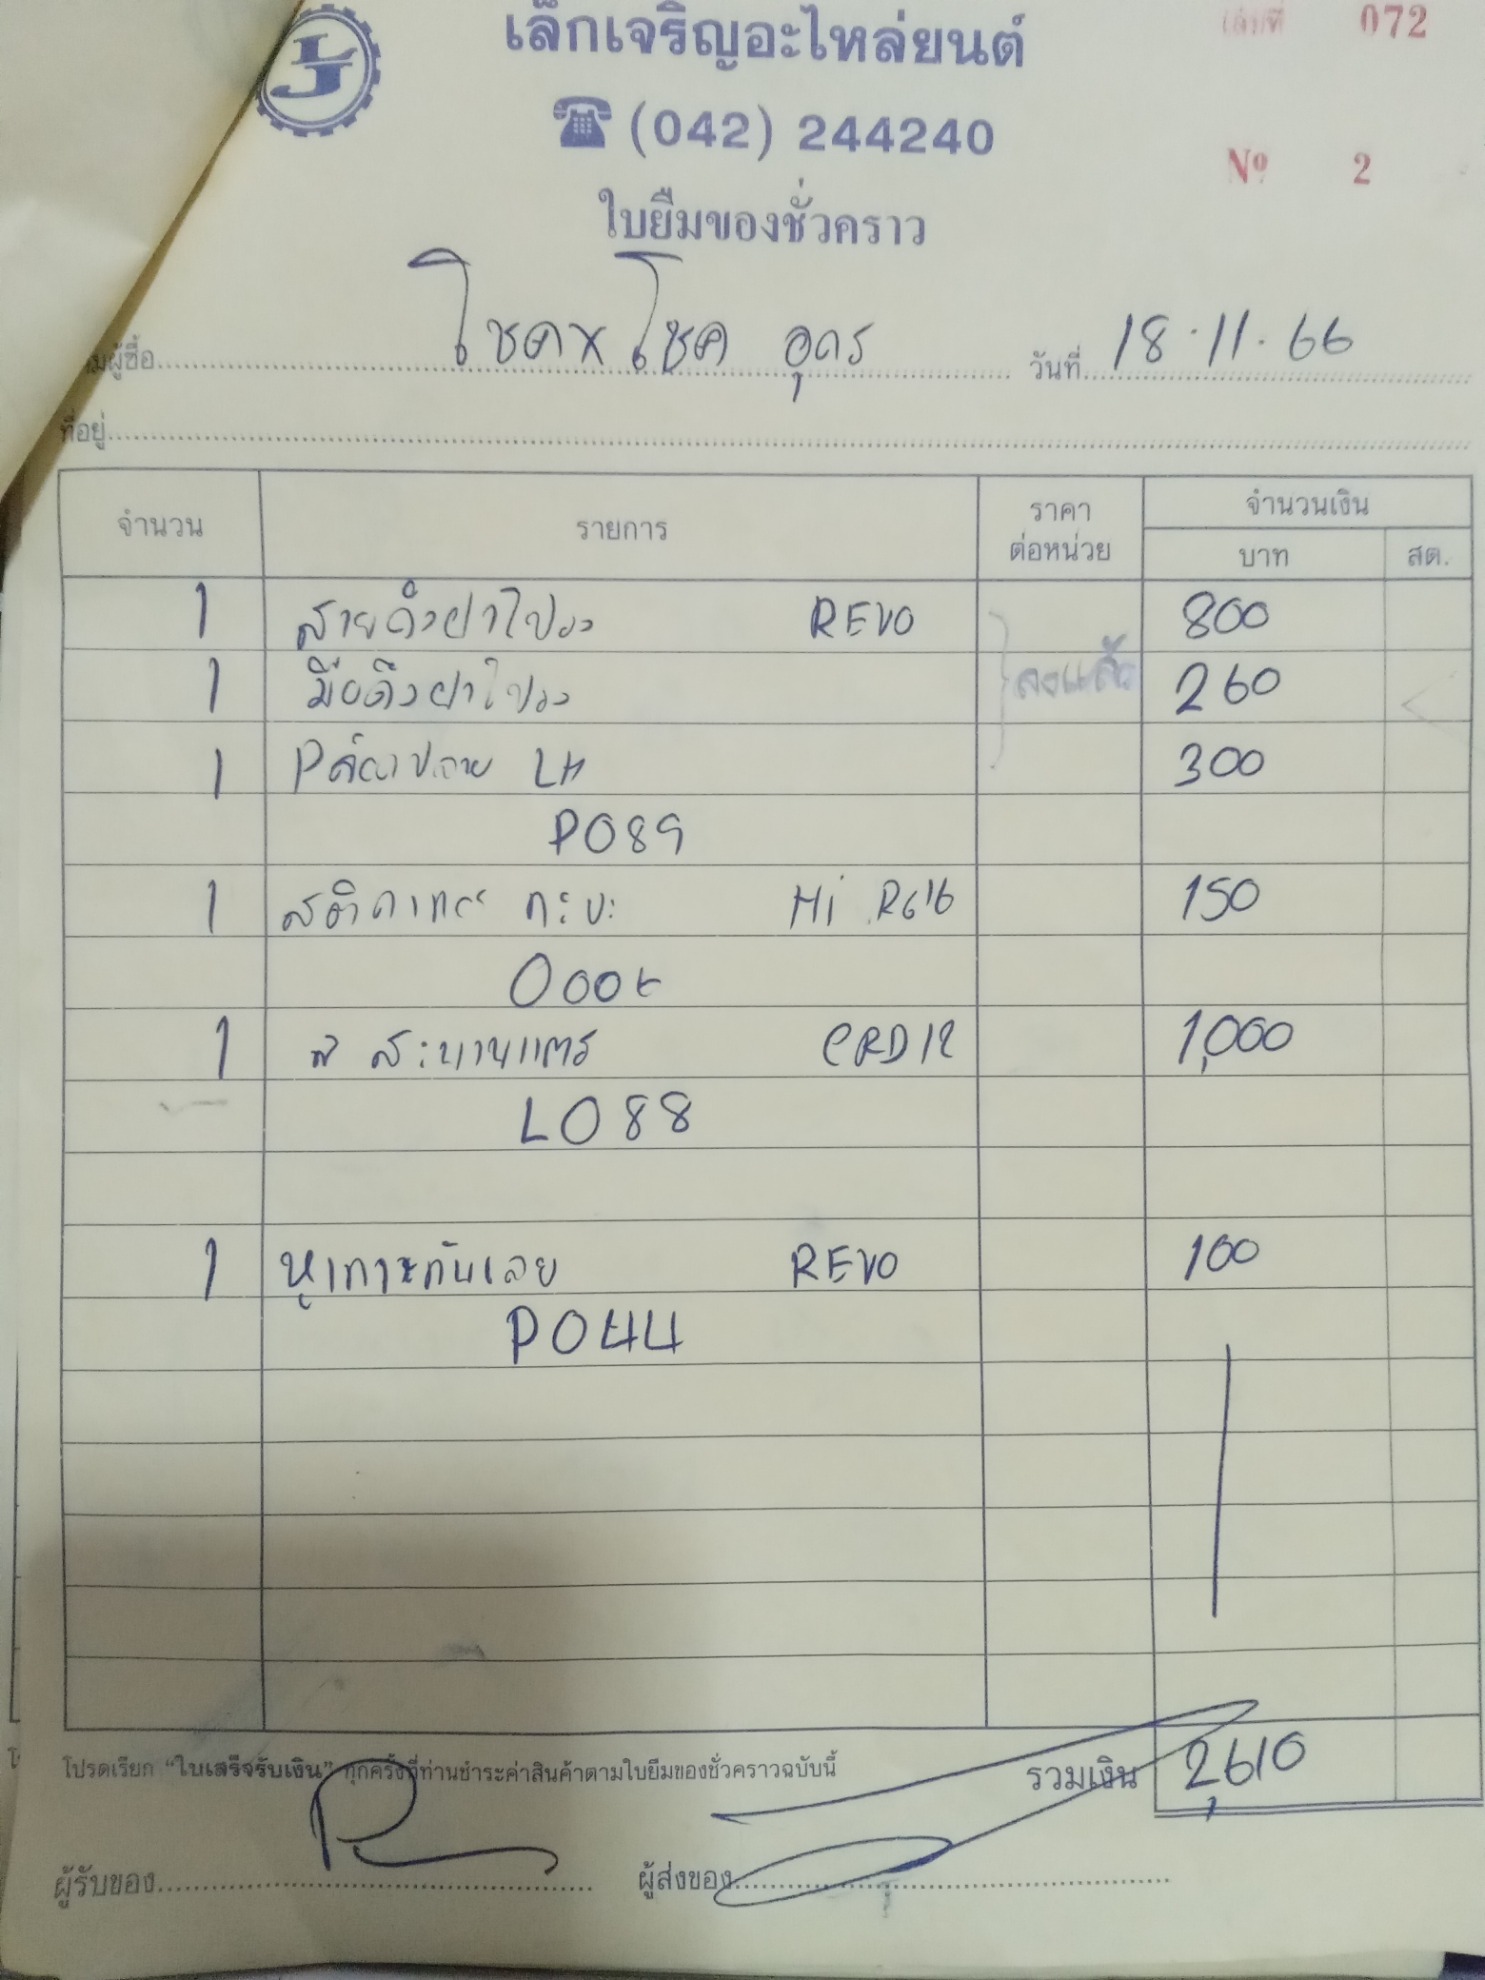 เล็กเจริญอะไหล่ยนต์
เล่มที่ 072
(042) 244240
Nº 2
ใบยืมของชั่วคราว
นามผู้ซื้อ โชคxโชค อุดร วันที่ 18.11.66
ที่อยู่
จำนวน รายการ ราคาต่อหน่วย จำนวนเงิน
บาท สต.
1 สายดึงฝาโปรง REVO 800
1 มือดึงฝาโปรง ลงแล้ว 260
1 LH 300
P089
1 สติกเกอร์ กะบะ Hi 150
1 CRD12 1,000
L088
1 REVO 100
P044
โปรดเรียก “ใบเสร็จรับเงิน” ทุกครั้งที่ท่านชำระค่าสินค้าตามใบยืมของชั่วคราวฉบับนี้ รวมเงิน 2,610
ผู้รับของ ผู้ส่งของ